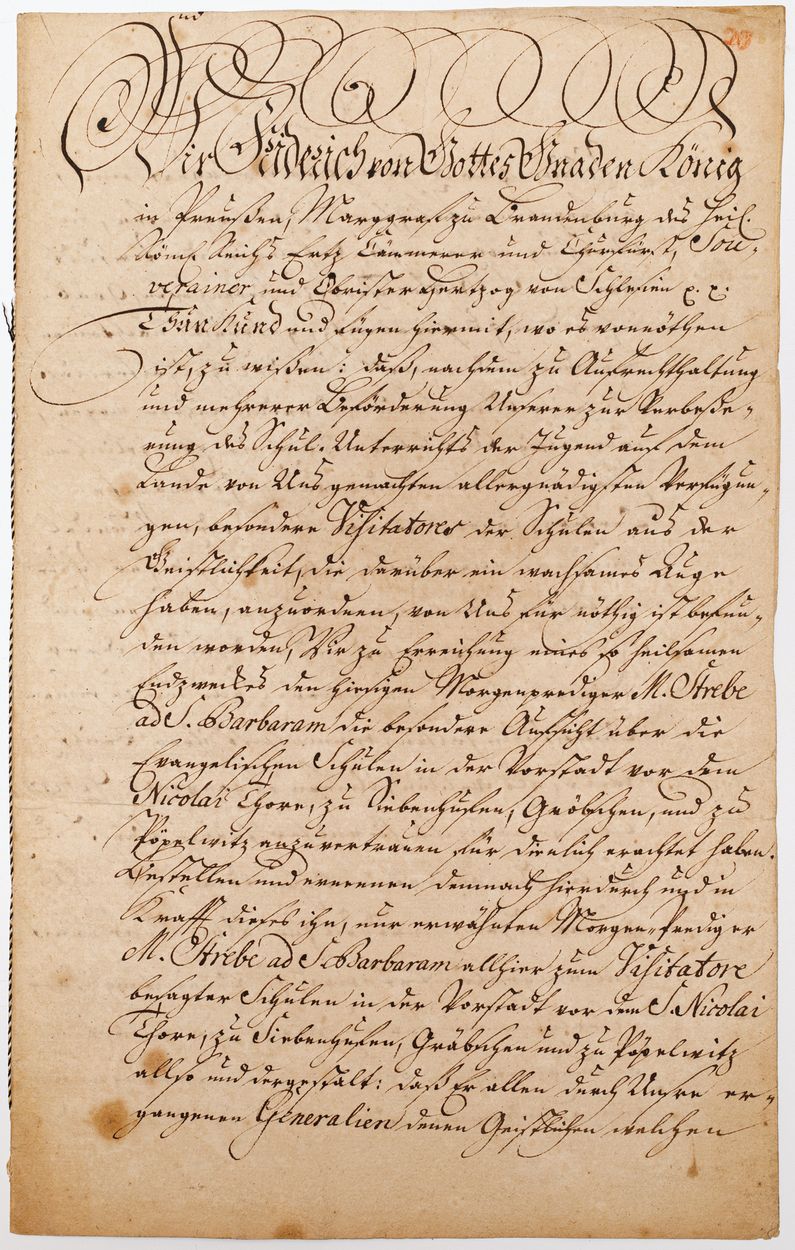 Wir Friderich von Gottes Gnaden König
in Preußen, Marggraf zu Brandenburg des Heil.
Röm. Reichs Ertz Cämmerer und Churfürst, Sou-
verainer und Obrister Hertzog von Schlesien p. p.
Thun Kund und fügen hiermit, wo es vonnöthen
ist, zu wißen: daß, nachdem zu Aufrechthaltung
und mehrerer Beförderung Unserer zur Verbeße-
rung des Schul-Unterrichts der Jugend auf dem
Lande von Uns gemachten allergnädigsten Verfügun-
gen, besondere Visitatores der Schulen aus der
Geistlichkeit, die darüber ein wachsames Auge
haben, anzuordnen, von Uns für nöthig ist befun-
den worden, Wir zu Erreichung eines so heilsamen
Endzweckes den hiesigen Morgenprediger M. Strebe
ad S. Barbaram die besondere Aufsicht über die
Evangelischen Schulen in der Vorstadt vor dem
Nicolai Thore, zu Siebenhufen, Gräbschen, und zu
Pöpelwitz anzuvertrauen für dienlich erachtet haben.
Bestellen und ernennen demnach hierdurch und in
Krafft dieses ihn, nur erwähnten Morgen-Prediger
M. Strebe ad S. Barbaram allhier zum Visitatore
besagter Schulen in der Vorstadt vor dem S. Nicolai
Thore, zu Siebenhufen, Gräbschen und zu Pöpelwitz
allso und dergestalt: daß Er allen durch Unsre er-
gangenen Generalien denen Geistlichen welchen